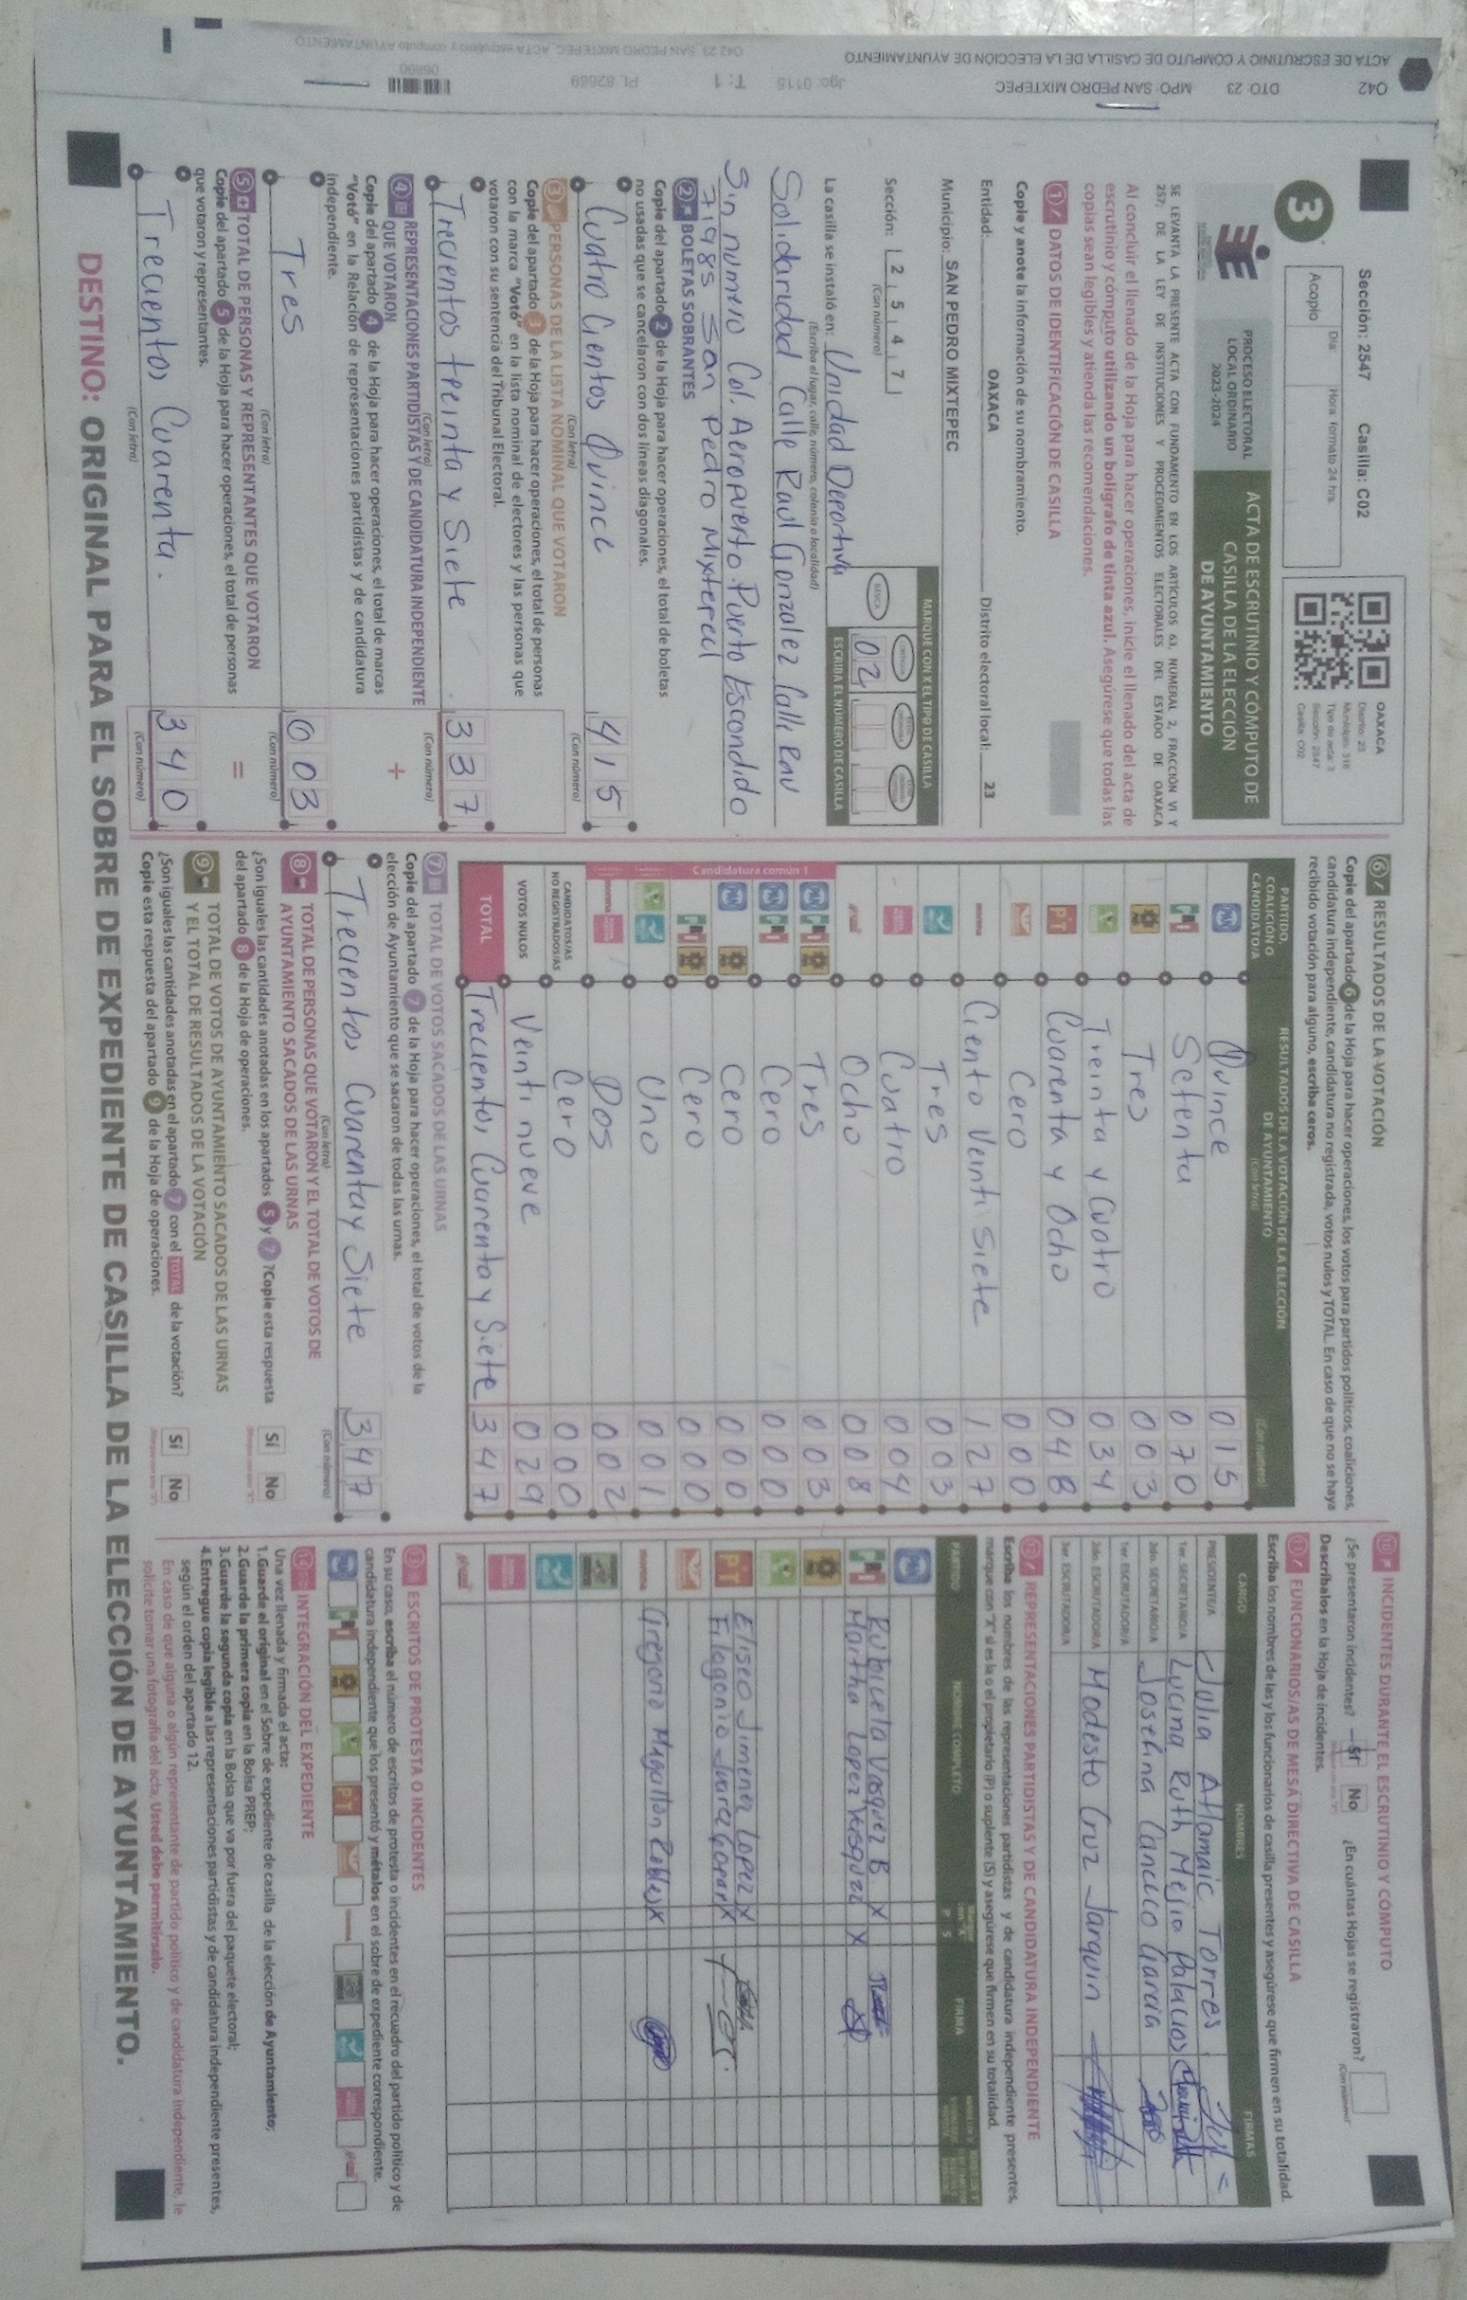 ACTA DE ESCRUTINIO Y CÓMPUTO DE CASILLA DE LA ELECCIÓN DE AYUNTAMIENTO
042 DTO: 23 MPO: SAN PEDRO MIXTEPEC Jgo: 0115 T: 1 PL 82669
042 23 SAN PEDRO MIXTEPEC ACTA escrutinio y computo AYUNTAMIENTO
Sección: 2547 Casilla: C02
3
Acopio
Día: Hora: formato 24 hrs.
OAXACA
Distrito: 23
Sección: 2547
Casilla: C02
PROCESO ELECTORAL
LOCAL ORDINARIO
2023-2024
ACTA DE ESCRUTINIO Y CÓMPUTO DE
CASILLA DE LA ELECCIÓN
DE AYUNTAMIENTO
SE LEVANTA LA PRESENTE ACTA CON FUNDAMENTO EN LOS ARTÍCULOS 63, NUMERAL 2, FRACCIÓN VI Y
257; DE LA LEY DE INSTITUCIONES Y PROCEDIMIENTOS ELECTORALES DEL ESTADO DE OAXACA
Al concluir el llenado de la Hoja para hacer operaciones, inicie el llenado del acta de
escrutinio y cómputo utilizando un bolígrafo de tinta azul. Asegúrese que todas las
copias sean legibles y atienda las recomendaciones.
1 DATOS DE IDENTIFICACIÓN DE CASILLA
Copie y anote la información de su nombramiento.
Entidad: OAXACA Distrito electoral local: 23
Municipio: SAN PEDRO MIXTEPEC
Sección: 2 5 4 7
(Con número)
MARQUE CON X EL TIPO DE CASILLA
BÁSICA
ESCRIBA EL NÚMERO DE CASILLA
02
La casilla se instaló en: Unidad Deportiva
(Escriba el lugar, calle, número, colonia o localidad)
Solidaridad Calle Raul Gonzalez Calle
Sin numero Col. Aeropuerto Puerto Escondido
71985 San Pedro Mixtepec
2 BOLETAS SOBRANTES
Copie del apartado 2 de la Hoja para hacer operaciones, el total de boletas
no usadas que se cancelaron con dos líneas diagonales.
Cuatro Cientos Quince 415
(Con letra) (Con número)
3 PERSONAS DE LA LISTA NOMINAL QUE VOTARON
Copie del apartado 3 de la Hoja para hacer operaciones, el total de personas
con la marca "Votó" en la lista nominal de electores y las personas que
votaron con su sentencia del Tribunal Electoral.
Trecientos treinta y Siete 337
(Con letra) (Con número)
4 REPRESENTACIONES PARTIDISTAS Y DE CANDIDATURA INDEPENDIENTE
QUE VOTARON
Copie del apartado 4 de la Hoja para hacer operaciones, el total de marcas
"Votó" en la Relación de representaciones partidistas y de candidatura
independiente.
+
Tres 003
(Con letra) (Con número)
5 TOTAL DE PERSONAS Y REPRESENTANTES QUE VOTARON
Copie del apartado 5 de la Hoja para hacer operaciones, el total de personas
que votaron y representantes.
=
Trecientos Cuarenta. 340
(Con letra) (Con número)
6 RESULTADOS DE LA VOTACIÓN
Copie del apartado 6 de la Hoja para hacer operaciones, los votos para partidos políticos, coaliciones,
candidatura independiente, candidatura no registrada, votos nulos y TOTAL. En caso de que no se haya
recibido votación para alguno, escriba ceros.
PARTIDO, COALICIÓN O CANDIDATO/A
RESULTADOS DE LA VOTACIÓN DE LA ELECCIÓN
DE AYUNTAMIENTO
(Con letra) (Con número)
PAN Quince 015
PRI Setenta 070
Tres 003
Treinta y Cuatro 034
PT Cuarenta y Ocho 048
Cero 000
morena Ciento Veinti Siete 127
Tres 003
Cuatro 004
Ocho 008
Candidatura común 1
Tres 003
Cero 000
Cero 000
Cero 000
Uno 001
Dos 002
CANDIDATOS/AS NO REGISTRADOS/AS Cero 000
VOTOS NULOS Veinti nueve 029
TOTAL Trecientos Cuarenta y Siete 347
7 TOTAL DE VOTOS SACADOS DE LAS URNAS
Copie del apartado 7 de la Hoja para hacer operaciones, el total de votos de la
elección de Ayuntamiento que se sacaron de todas las urnas.
Trecientos Cuarenta y Siete 347
(Con letra) (Con número)
8 TOTAL DE PERSONAS QUE VOTARON Y EL TOTAL DE VOTOS DE
AYUNTAMIENTO SACADOS DE LAS URNAS
¿Son iguales las cantidades anotadas en los apartados 5 y 7? Copie esta respuesta
del apartado 8 de la Hoja de operaciones.
Sí No
9 TOTAL DE VOTOS DE AYUNTAMIENTO SACADOS DE LAS URNAS
Y EL TOTAL DE RESULTADOS DE LA VOTACIÓN
¿Son iguales las cantidades anotadas en el apartado 7 con el TOTAL de la votación?
Copie esta respuesta del apartado 9 de la Hoja de operaciones.
Sí No
10 INCIDENTES DURANTE EL ESCRUTINIO Y CÓMPUTO
¿Se presentaron incidentes? Sí No ¿En cuántas Hojas se registraron?
(Con número)
Descríbalos en la Hoja de incidentes.
11 FUNCIONARIOS/AS DE MESA DIRECTIVA DE CASILLA
Escriba los nombres de las y los funcionarios de casilla presentes y asegúrese que firmen en su totalidad.
CARGO NOMBRES FIRMAS
PRESIDENTE/A Julia Atlamaic Torres
1er. SECRETARIO/A Lucina Ruth Mejio Palacios
2do. SECRETARIO/A Josefina Canseco Garcia
1er. ESCRUTADOR/A
2do. ESCRUTADOR/A Modesto Cruz Jarquin
3er. ESCRUTADOR/A
12 REPRESENTACIONES PARTIDISTAS Y DE CANDIDATURA INDEPENDIENTE
Escriba los nombres de las representaciones partidistas y de candidatura independiente presentes,
marque con "X" si es la o el propietario (P) o suplente (S) y asegúrese que firmen en su totalidad.
PARTIDO NOMBRE COMPLETO P S FIRMA
Rubicela Vasquez B X
Martha Lopez Vasquez X
PT Eliseo Jimenez Lopez X
Filogonio Juarez X
morena Gregorio Magallon Robles X
13 ESCRITOS DE PROTESTA O INCIDENTES
En su caso, escriba el número de escritos de protesta o incidentes en el recuadro del partido político y de
candidatura independiente que los presentó y métalos en el sobre de expediente correspondiente.
14 INTEGRACIÓN DEL EXPEDIENTE
Una vez llenada y firmada el acta:
1. Guarde el original en el Sobre de expediente de casilla de la elección de Ayuntamiento;
2. Guarde la primera copia en la Bolsa PREP;
3. Guarde la segunda copia en la Bolsa que va por fuera del paquete electoral;
4. Entregue copia legible a las representaciones partidistas y de candidatura independiente presentes,
según el orden del apartado 12.
En caso de que alguna o algún representante de partido político y de candidatura independiente, le
solicite tomar una fotografía del acta, Usted debe permitírselo.
DESTINO: ORIGINAL PARA EL SOBRE DE EXPEDIENTE DE CASILLA DE LA ELECCIÓN DE AYUNTAMIENTO.